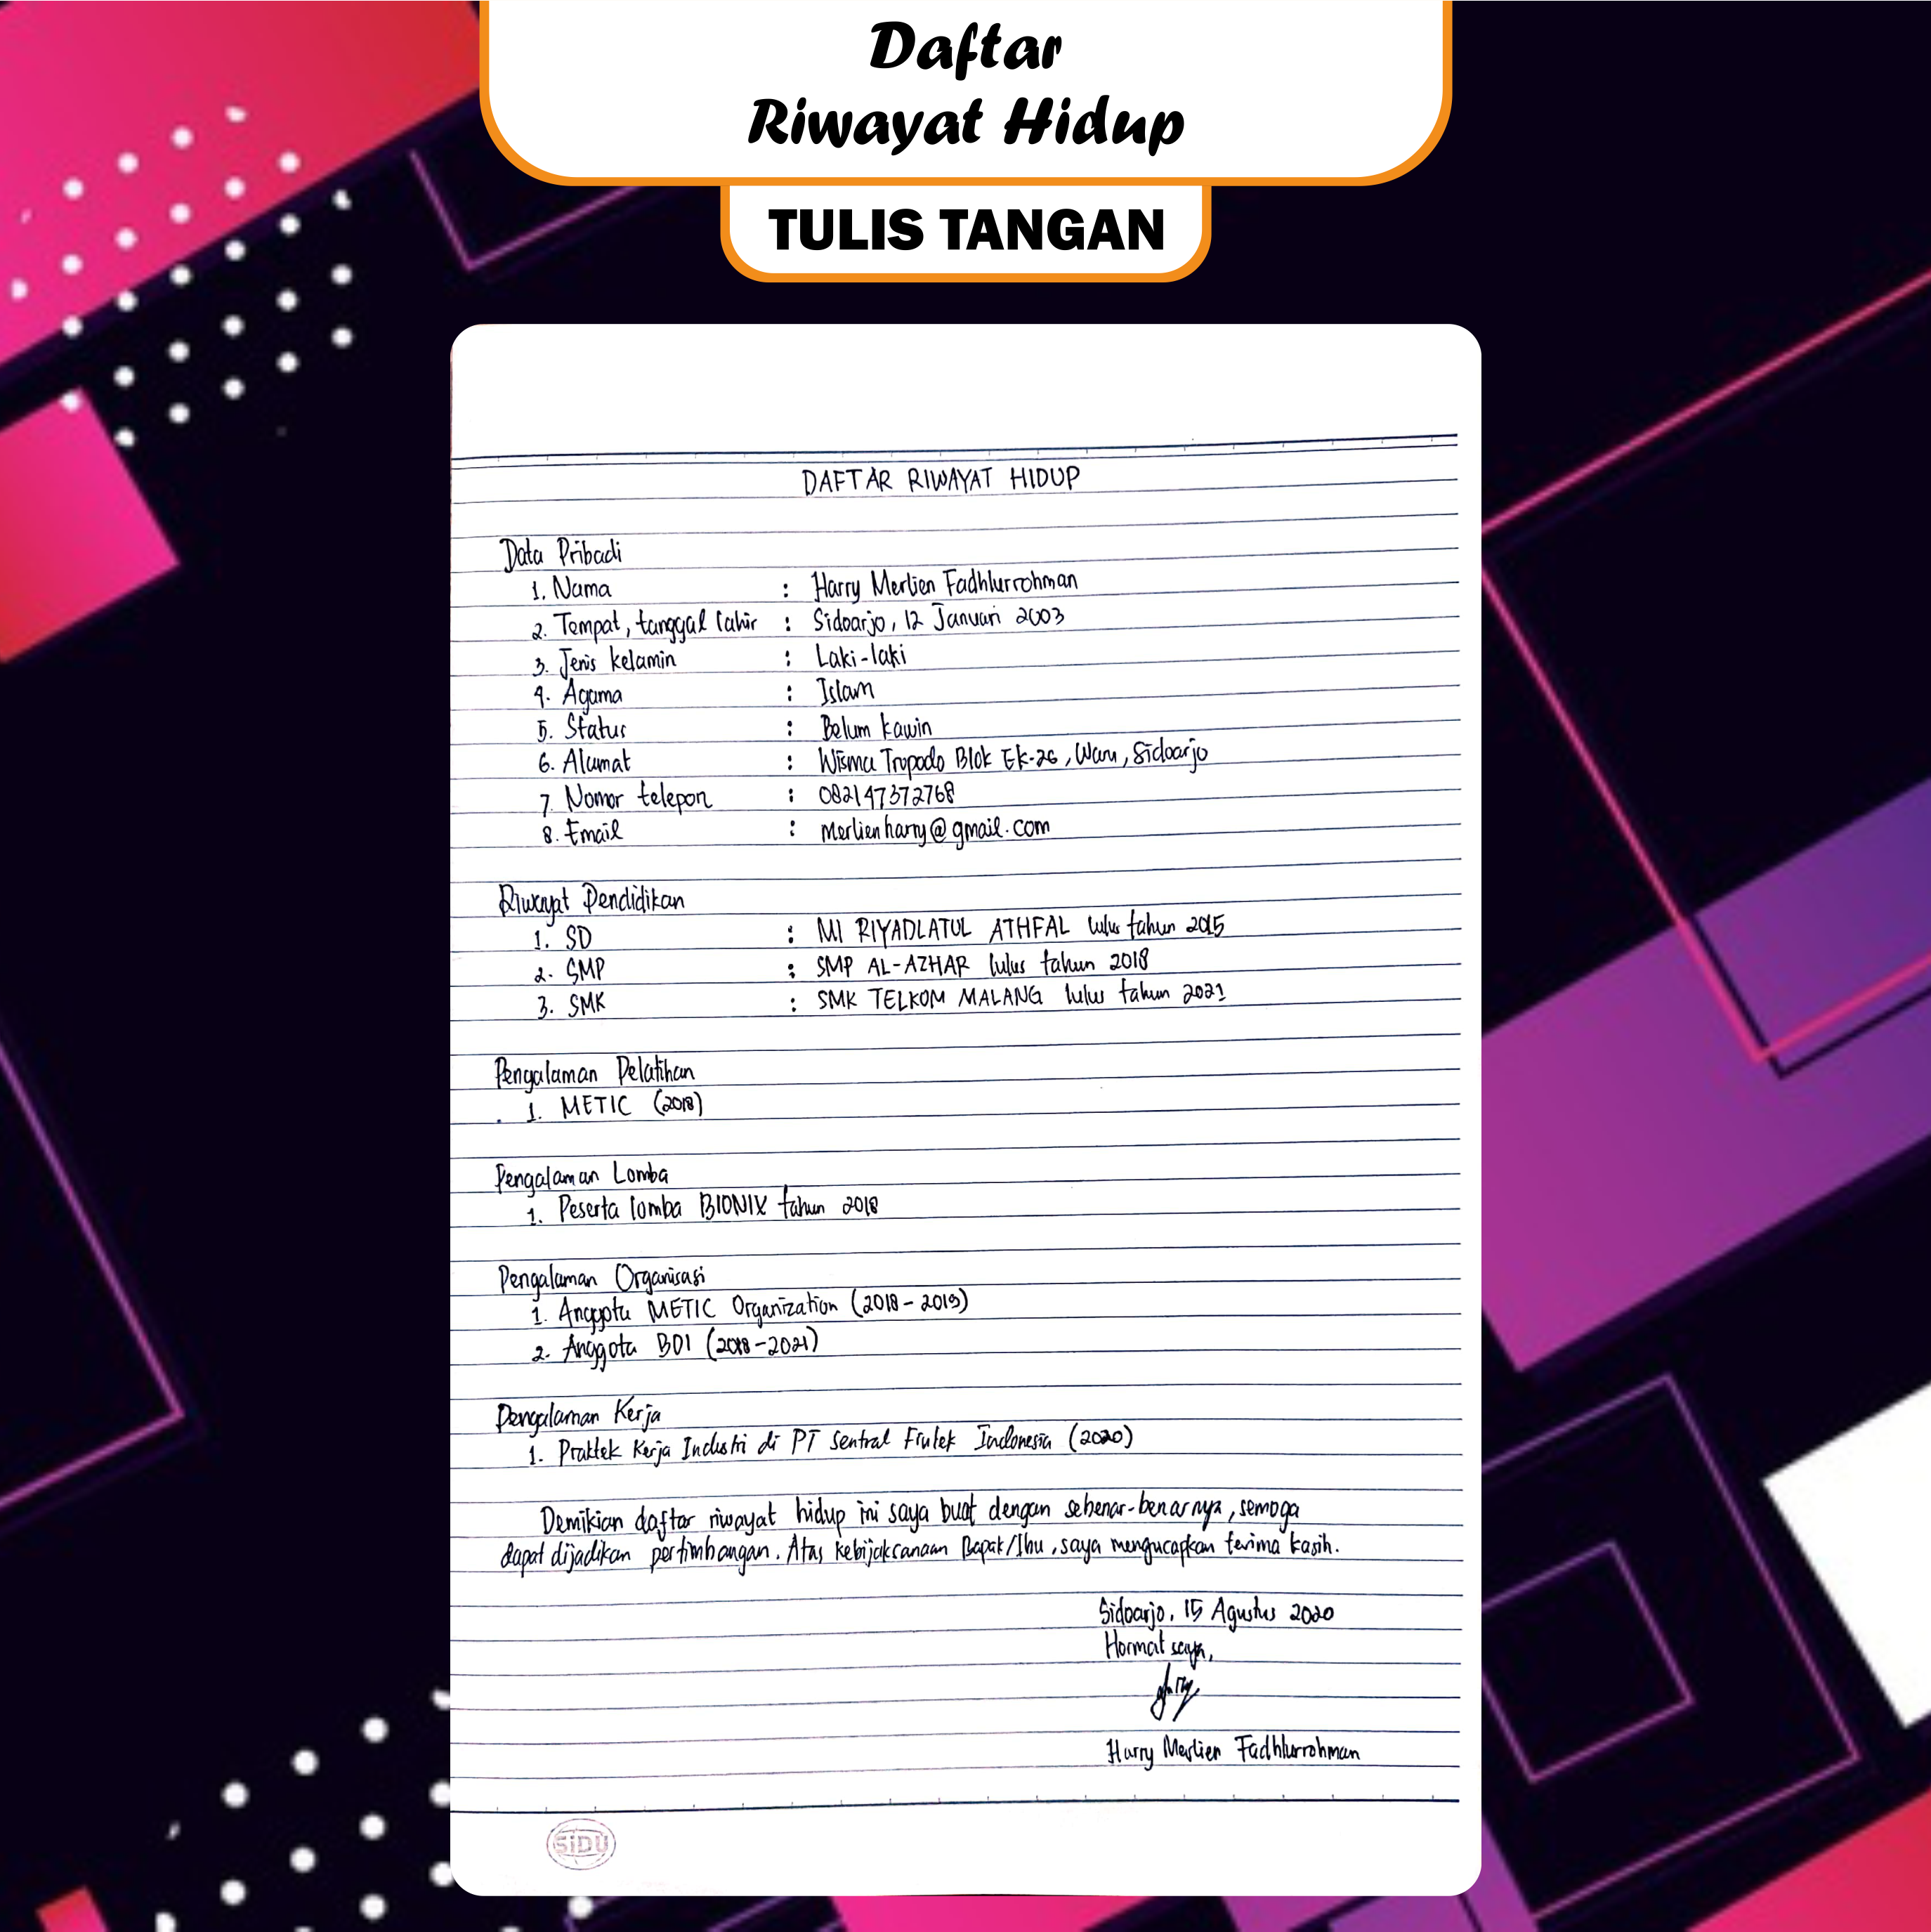 Daftar
Riwayat Hidup
TULIS TANGAN
DAFTAR RIWAYAT HIDUP
Data Pribadi
1. Nama : Harry Merlien Fadhlurrohman
2. Tempat, tanggal lahir : Sidoarjo, 12 Januari 2003
3. Jenis kelamin : Laki-laki
4. Agama : Islam
5. Status : Belum kawin
6. Alamat : Wisma Tropodo Blok EK-26, Waru, Sidoarjo
7. Nomor telepon : 082147372768
8. Email : merlienharry@gmail.com
Riwayat Pendidikan
1. SD : MI RIYADLATUL ATHFAL lulus tahun 2015
2. SMP : SMP AL-AZHAR lulus tahun 2018
3. SMK : SMK TELKOM MALANG lulus tahun 2021
Pengalaman Pelatihan
1. METIC (2018)
Pengalaman Lomba
1. Peserta lomba BIONIX tahun 2018
Pengalaman Organisasi
1. Anggota METIC Organization (2018 - 2019)
2. Anggota BDI (2018 - 2021)
Pengalaman Kerja
1. Praktek Kerja Industri di PT Sentral Indonesia (2020)
Demikian daftar riwayat hidup ini saya buat dengan sebenar-benarnya, semoga
dapat dijadikan pertimbangan. Atas kebijaksanaan Bapak/Ibu, saya mengucapkan terima kasih.
Sidoarjo, 15 Agustus 2020
Hormat saya,
Harry Merlien Fadhlurrohman
SiDU